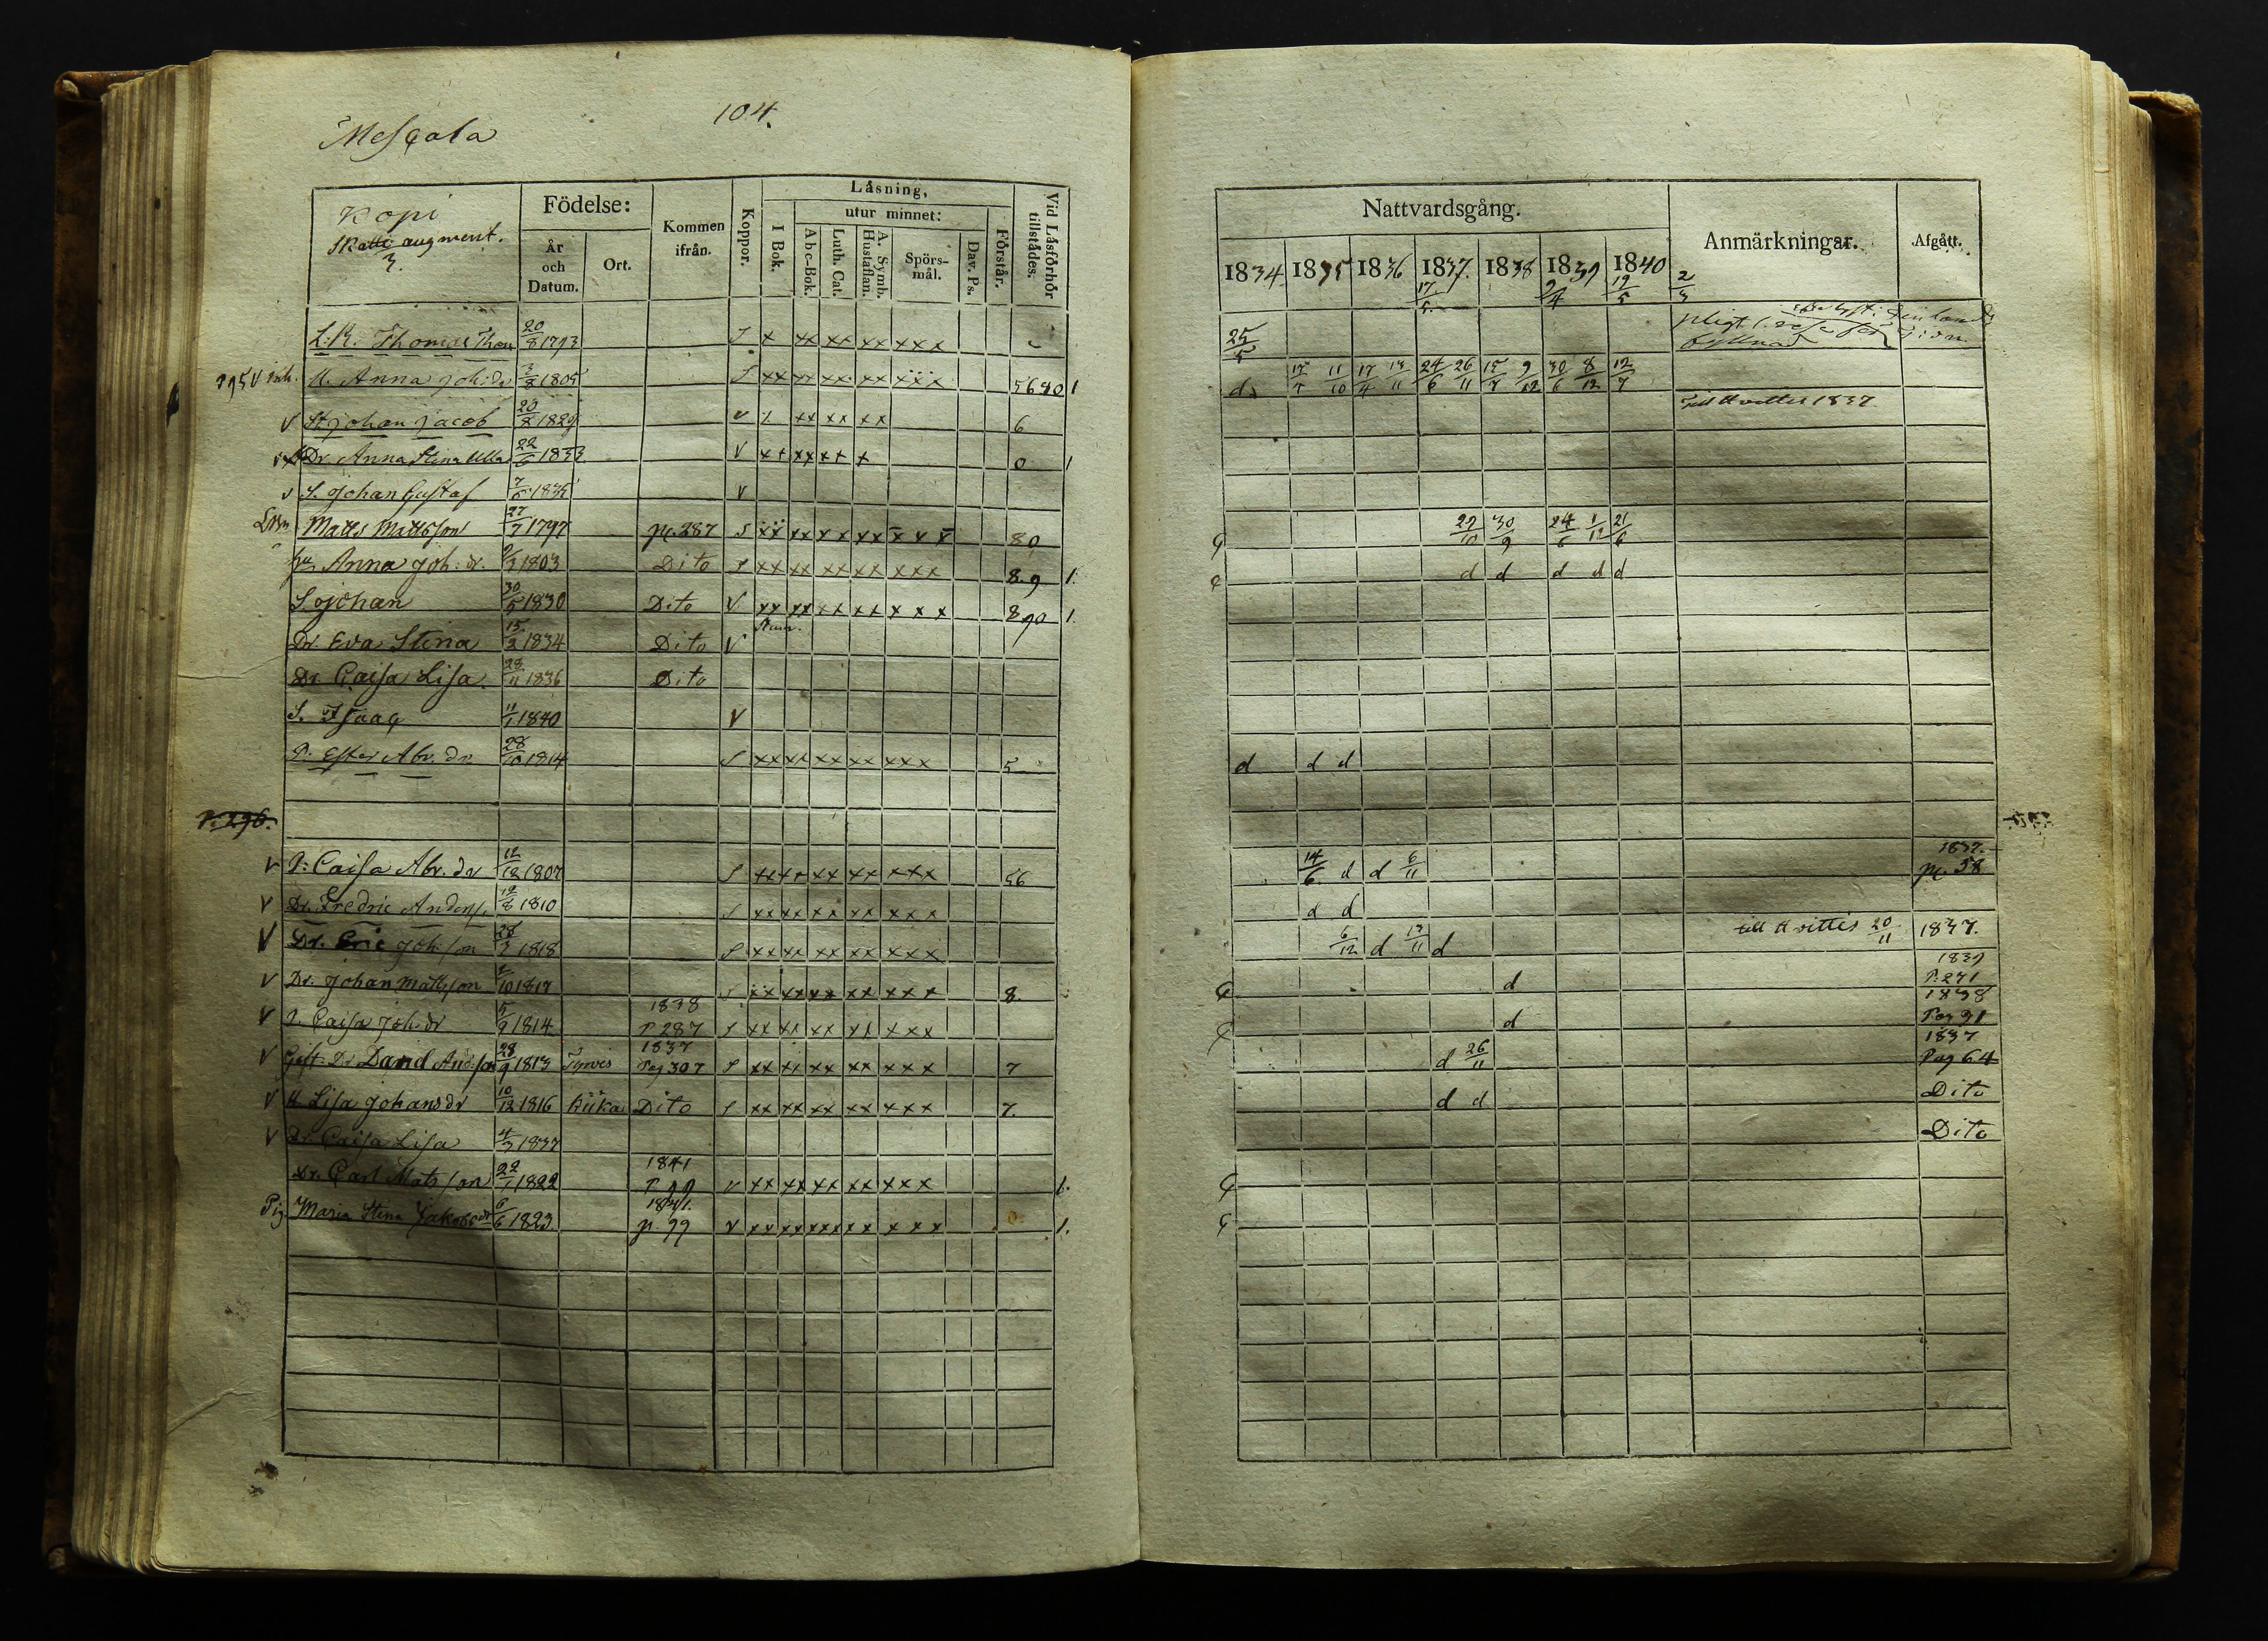 104.
Mesçala
Kopi
Skatte augment.
3.
Födelse:
År och Datum.
Ort.
Kommen ifrån.
Koppor.
Läsning,
I Bok.
utur minnet:
Abc-Bok.
Luth. Cat.
A. Symb. Hustaflan.
Spörsmål.
Dav. Ps.
Förstår.
Vid Läsförhör tillstädes.
Nattvardsgång.
1834 1835 1836 1837 1838 1839 1840
17/5 19/5
Anmärkningar.
Afgått.
Thomas 20/8 1793 S x xx xx xx xxx 25/5
H. Anna Joh:dr 1805 S xx xx xx xx xxx 5680 1 d
St Johan Jacob 20/8 1829 v xx xx xx 6 1837
Dr. Anna Stina Ulla 22/6 1833 V xx xx xx x 0 1
S. Johan Gustaf 1835 V
Matts Mattsson 27/7 1797 pg. 287 S xx xx xx xx xxx 80 29/10 30/9 24/6 1/12 21/6
hu Anna Joh: dr. 1803 Dito S xx xx xx xx xxx 8.9 1. d d d d d
S Johan 30/5 1830 Dito V xx xx xx xx xxx 890 1.
Dr. Eva Stina 15/3 1834 Dito V
Dr. Caisa Lisa 28/11 1836 Dito
S. Isaaq 11/1 1840 V
P. Ester Abr. dr 28/10 1814 S xx xx xx xx xxx 5 d d d
P. 296.
v P: Caisa Abr. dr 12/12 1807 S xx xx xx xx xxx 56 14/6 d d 6/11 1837. pg. 58
v Dr. Fredric Anderss. 1810 S xx xx xx xx xxx d d
V Dr. Eric Joh:son 28/3 1818 S xx xx xx xx xxx 6/12 d 13/11 d till Hvittis 20/11 1837.
v Dr. Johan Mattsson 1817 S xx xx xx xx xxx 8 d 1839 P. 271
v P. Caisa Joh:dr 5/9 1814 1838 P 287 S xx xx xx xx xxx d 1838 Pag 91
v Gift Dr David Andsson 28/9 1813 Tyrvis 1837 Pag 307 S xx xx xx xx xxx 7 d 26/11 1837 Pag 64
v H Lisa Johansdr 10/12 1816 Kiika Dito S xx xx xx xx xxx 7. d d Dito
v Dr Caisa Lisa 4/3 1837 Dito
Dr. Carl Matsson 22/1 1822 1841 P 99 v xx xx xx xx xxx 1.
Pig Maria Stina Jakobsdr 6/6 1823 1841. p. 99 v xx xx xx xx xxx 1.